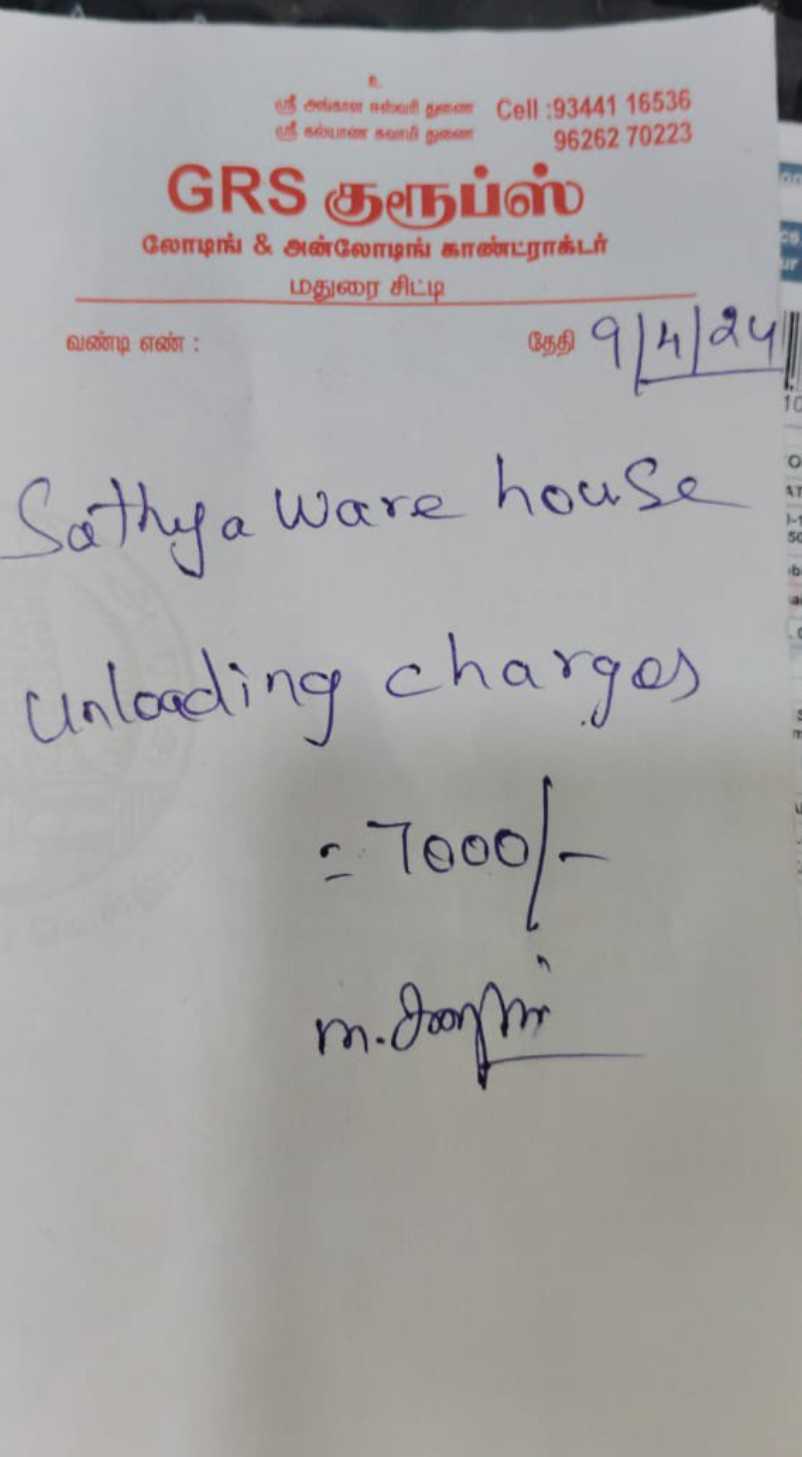 உ
ஸ்ரீ அங்காள ஈஸ்வரி துணை Cell :93441 16536
ஸ்ரீ கல்யாண சுவாமி துணை 96262 70223
GRS குரூப்ஸ்
லோடிங் & அன்லோடிங் காண்ட்ராக்டர்
மதுரை சிட்டி
வண்டி எண் : தேதி 9/4/24
Sathya Ware house
unloading charges
= 7000/-
m.